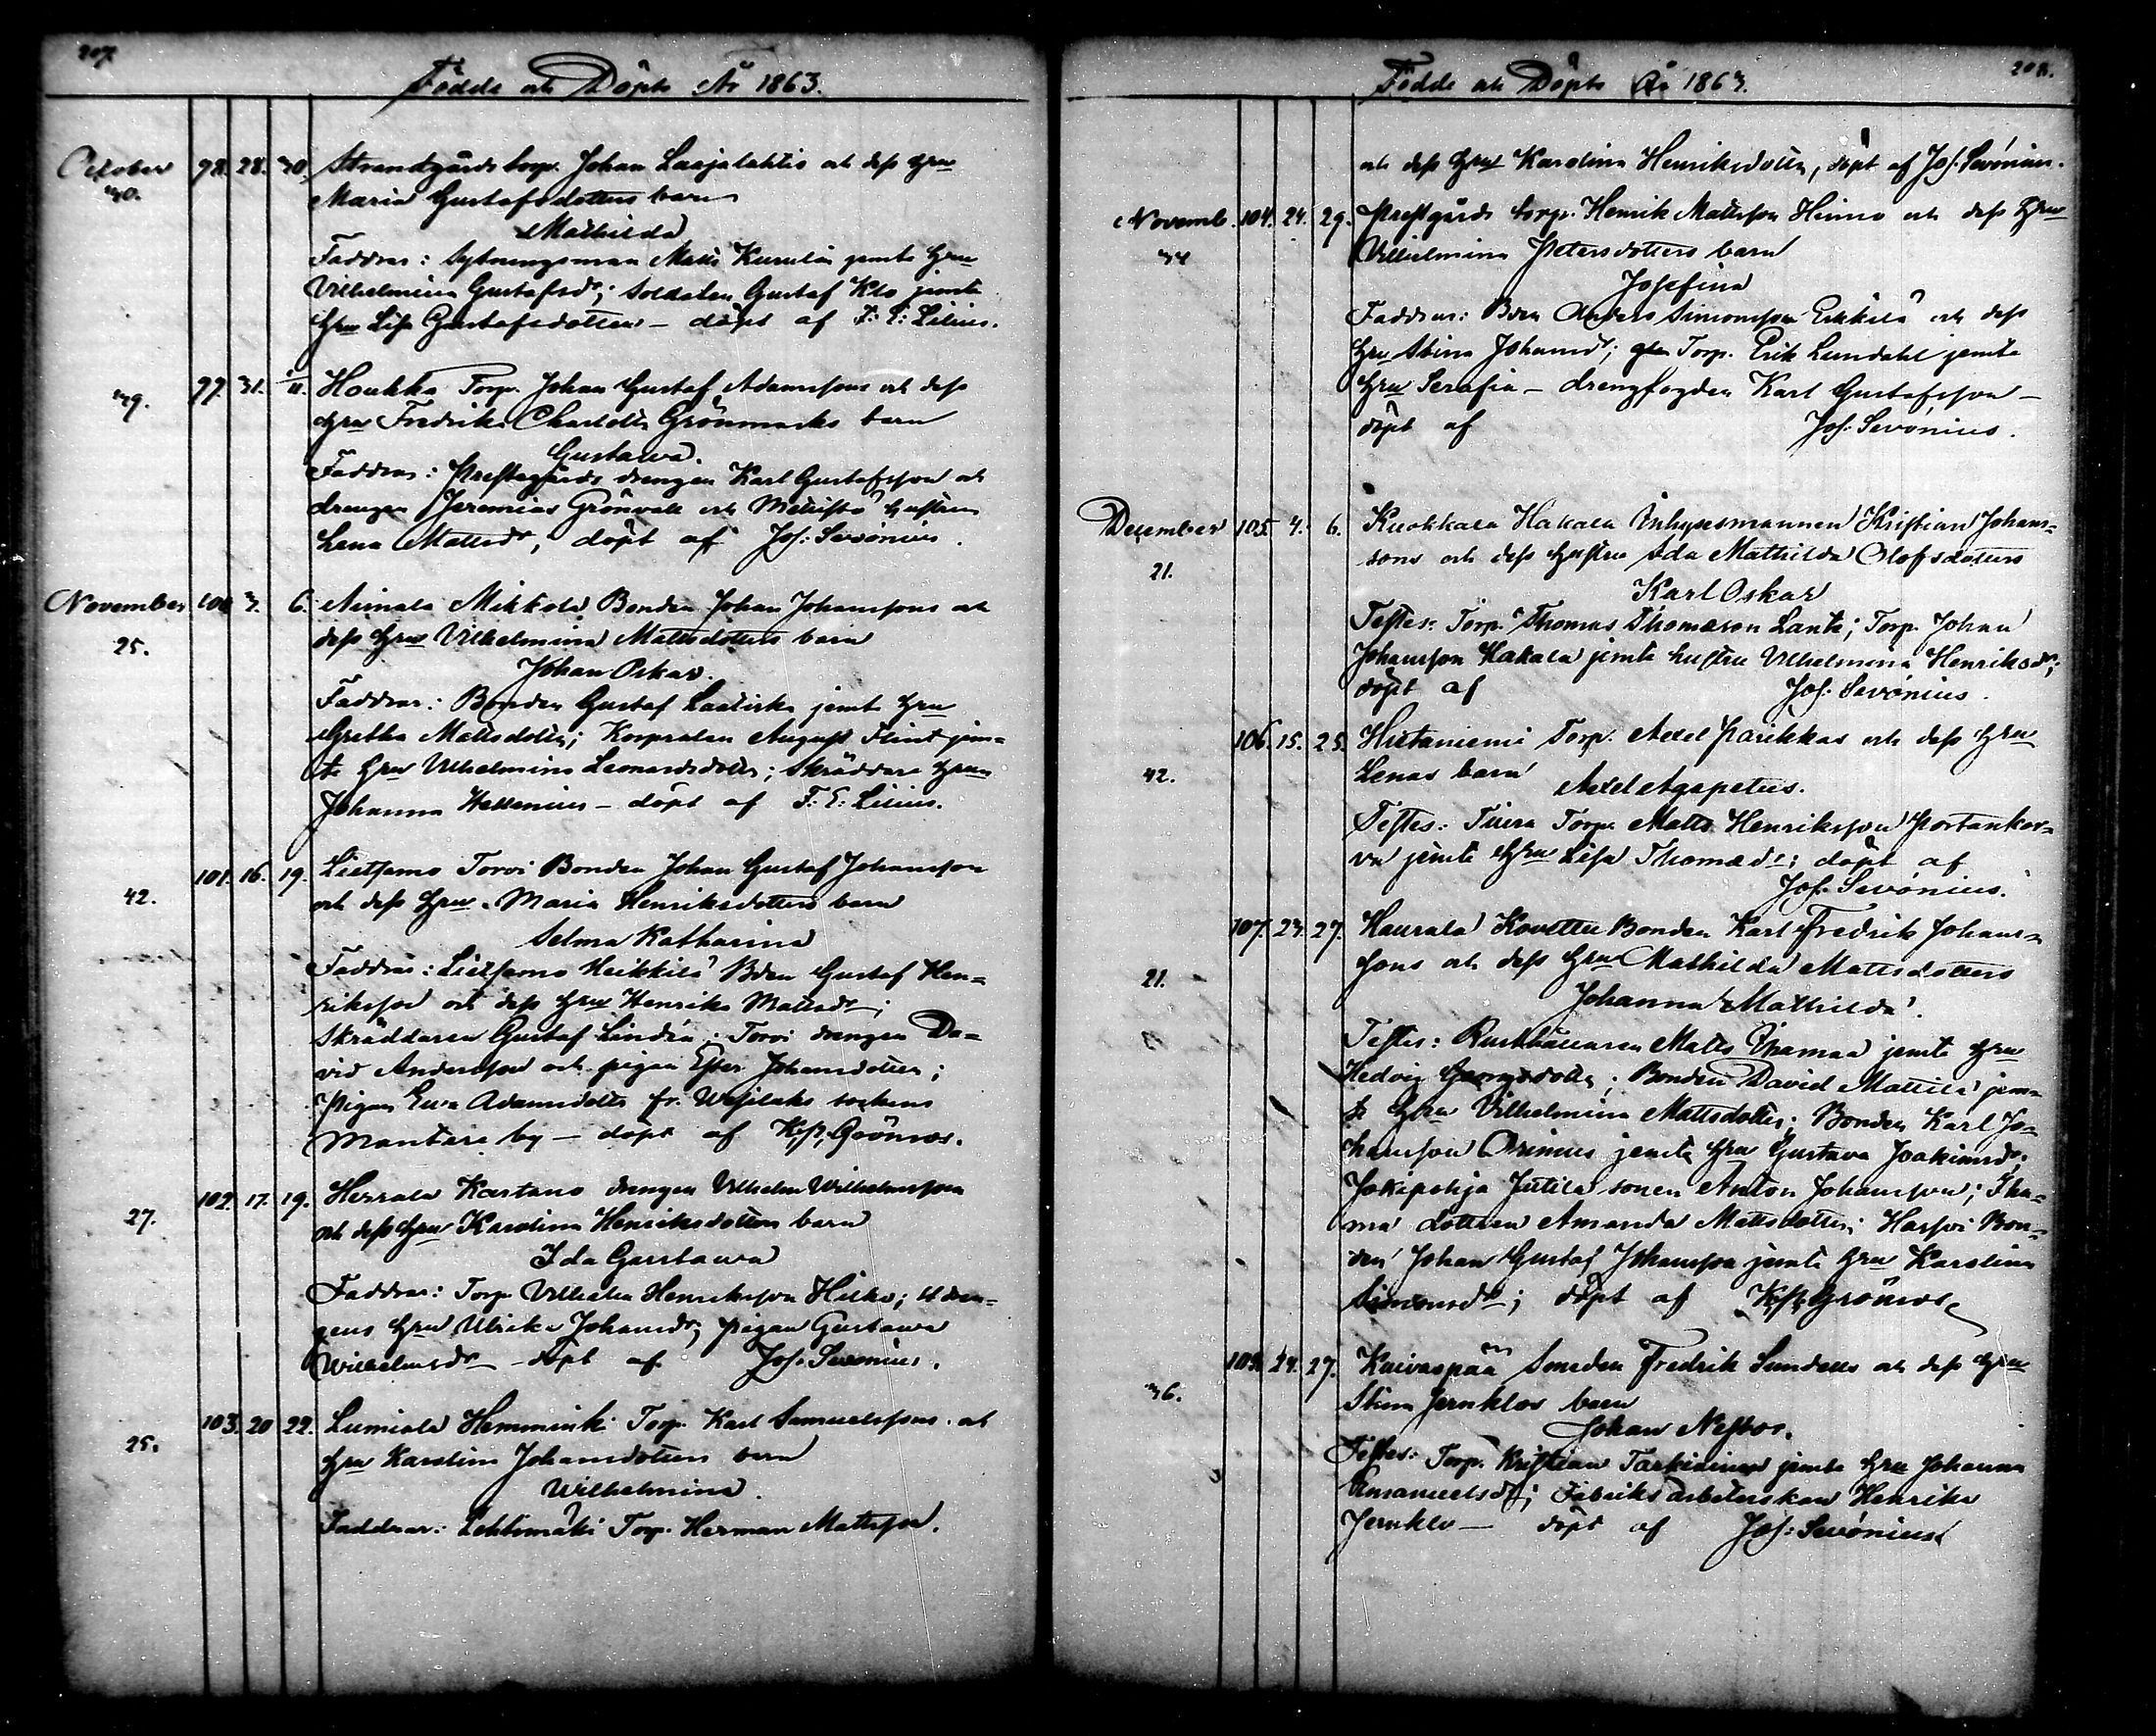 207.
Födde och Döpte År 1863.
October 98. 28. 30. Strandgårds torp. Johan Laajalahtis och dess Hru
30. Maria Gustafsdotters barn
Mathilda
Faddrar: Sytningsman Matts jemte Hru
Vilhelmina Gustafsdr; Soldaten Gustaf Klo jemte
Hru Lisa Gustafsdotter – döpt af F. E. Lilius.
99. 31. 1/11. Houkka Torp. Johan Gustaf Adamssons och dess
39. Hru Fredrika Charlotta Grönmarks barn
Gustawa.
Faddrar: Prestegårds drengen Karl Gustafsson och
drengen Jeremias Grönvall och hustrun
Lena Mattsdr, döpt af Jos. Sevónius.
November 100. 3. 6. Aimala Mikkola Bonden Johan Johanssons och
25. dess Hru Vilhelmina Mattsdotters barn
Johan Oskar.
Faddrar: Bonden Gustaf jemte Hru
Gretha Mattsdotter; Korpralen August Flint jem-
te Hru Vilhelmina Leonardsdotter; Skräddare Hrun
Johanna Hallenius – döpt af F. E. Lilius.
101. 16. 19. Lietsamo Torvi Bonden Johan Gustaf Johansson
42. och dess Hru Maria Henriksdotters barn
Selma Katharina
Faddrar: Lietsamo Heikkilä Bden Gustaf Hen-
riksson och dess Hru Henrika Mattsdr;
Skräddaren Gustaf Lindén; Torvi drengen Da-
vid Andersson och pigan Ester Johansdotter;
Pigan Eva Adamsdotter fr. Wesilaks sockens
Mantere by – döpt af Kp. Grönros.
102. 17. 19. Herrala Kartano drengen Vilhelm Wilhelmsson
27. och dess Hru Karolina Henriksdotters barn
Ida Gustawa
Faddrar: Torp. Vilhelm Henriksson Hilko; dren-
gens Hru Ulrika Johansdr; pigan Gustawa
Wilhelmsdr – döpt af Jos. Sevónius.
103. 20. 22. Lumiala Hemminki Torp. Karl Samuelssons och
25. Hru Karolina Johansdotters barn
Wilhelmina.
Faddrar: Lehtimäki Torp. Herman Mattsson.
208.
Födde och Döpte År 1863.
och dess Hru Karolina Henriksdotter, döpt af Jos. Sevónius.
Novemb. 104. 24. 29. Prestgårds torp. Henrik Mattsson Hinno och dess Hru
34 Vilhelmina Petersdotters barn
Josefina
Faddrar: Bden Anders Simonsson Eskilä och dess
Hru Stina Johansdr; Torp. Erik Lundahl jemte
Hru Serafia – drengfogden Karl Gustafsson –
döpt af Jos. Sevónius.
December 105. 4. 6. Kuokkala Hakala Inhysesmannen Kristian Johans-
21. sons och dess hustru Ida Mathilda Olofsdotters
Karl Oskar
Testes: Torp. Thomas Thomasson Lante; Torp. Johan
Johansson Hakala jemte hustru Vilhelmina Henriksdr;
döpt af Jos. Sevónius.
106. 15. 25. Hietaniemi Torp. Axel Parikkas och dess Hru
42. Lenas barn
Axel Agapetus.
Testes: Torp. Matts Henriksson Portankor-
va jemte Hru Lisa Thomasdr; döpt af
Jos. Sevónius.
107. 23. 27. Haurala Kovettu Bonden Karl Fredrik Johans-
sons och dess Hru Mathilda Mattsdotters
21. Johanna Mathilda.
Testes: Rusthållaren Matts Ihamaa jemte Hru
Hedvig Georgsdotter; Bonden David Mattila jem-
te Hru Vilhelmina Mattsdotter; Bonden Karl Jo-
hansson Orinius jemte Hru Gustava Joakimsdr;
Jokipohja Jutila sonen Anton Johansson; Iha-
ma dottren Amanda Mattsdotter; Bon-
den Johan Gustaf Johansson jemte Hru Karolina
Simonsdr; döpt af Kp. Grönros
108. 24. 27. Kaivospää Smeden Fredrik Sundells och dess Hru
36. Stina Jernklos barn
Johan Nestor.
Testes: Torp. Kristian Tarkiainen jemte Hru Johanna
Emanuelsdr; Fabriks arbeterskan Henrika
Jernklo – döpt af Jos. Sevónius.